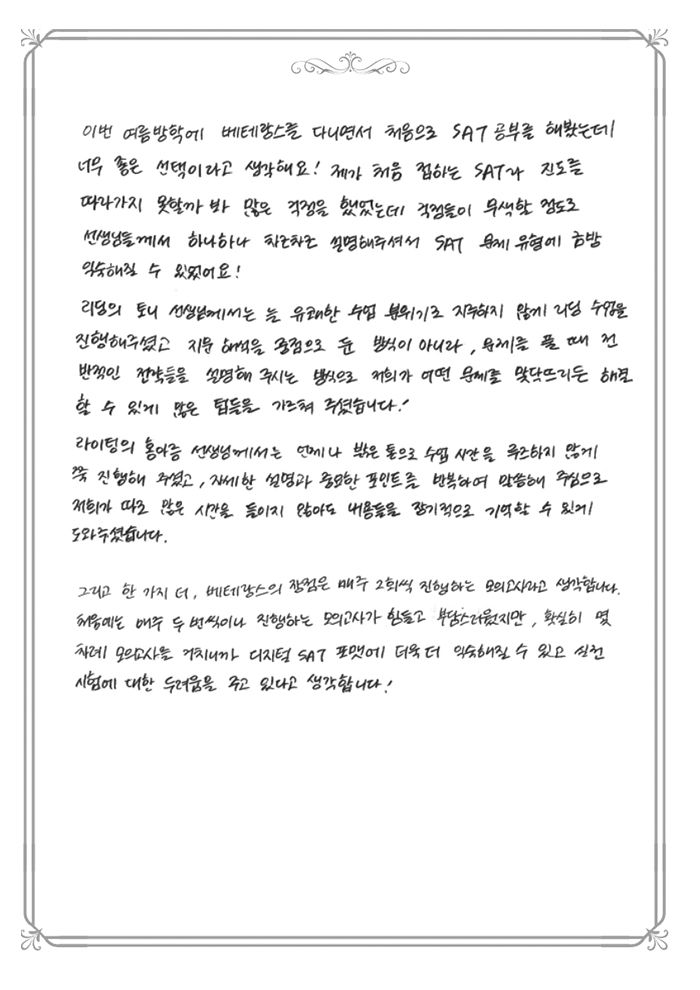 이번 여름방학에 베테랑스를 다니면서 처음으로 SAT 공부를 해봤는데
너무 좋은 선택이라고 생각해요! 제가 처음 접하는 SAT라 진도를
따라가지 못할까 봐 많은 걱정을 했었는데 걱정들이 무색할 정도로
선생님들께서 하나하나 차근차근 설명해주셔서 SAT 문제 유형에 금방
익숙해질 수 있었어요!
리딩의 토니 선생님께서는 늘 유쾌한 수업 분위기로 지루하지 않게 리딩 수업을
진행해주셨고 지문 해석을 중점으로 둔 방식이 아니라, 문제를 풀 때 전
반적인 전략들을 설명해 주시는 방식으로 저희가 어떤 문제를 맞닥뜨리든 해결
할 수 있게 많은 팁들을 가르쳐 주셨습니다!
라이팅의 홍아름 선생님께서는 언제나 밝은 톤으로 수업 시간을 루즈하지 않게
쭉 진행해 주셨고, 자세한 설명과 중요한 포인트를 반복하여 말씀해 주심으로
저희가 따로 많은 시간을 들이지 않아도 내용들을 장기적으로 기억할 수 있게
도와주셨습니다.
그리고 한 가지 더, 베테랑스의 장점은 매주 2회씩 진행하는 모의고사라고 생각합니다.
처음에는 매주 두 번씩이나 진행하는 모의고사가 힘들고 부담스러웠지만, 확실히 몇
차례 모의고사를 거치니까 디지털 SAT 포맷에 더욱 더 익숙해질 수 있고 실전
시험에 대한 두려움을 주고 있다고 생각합니다!